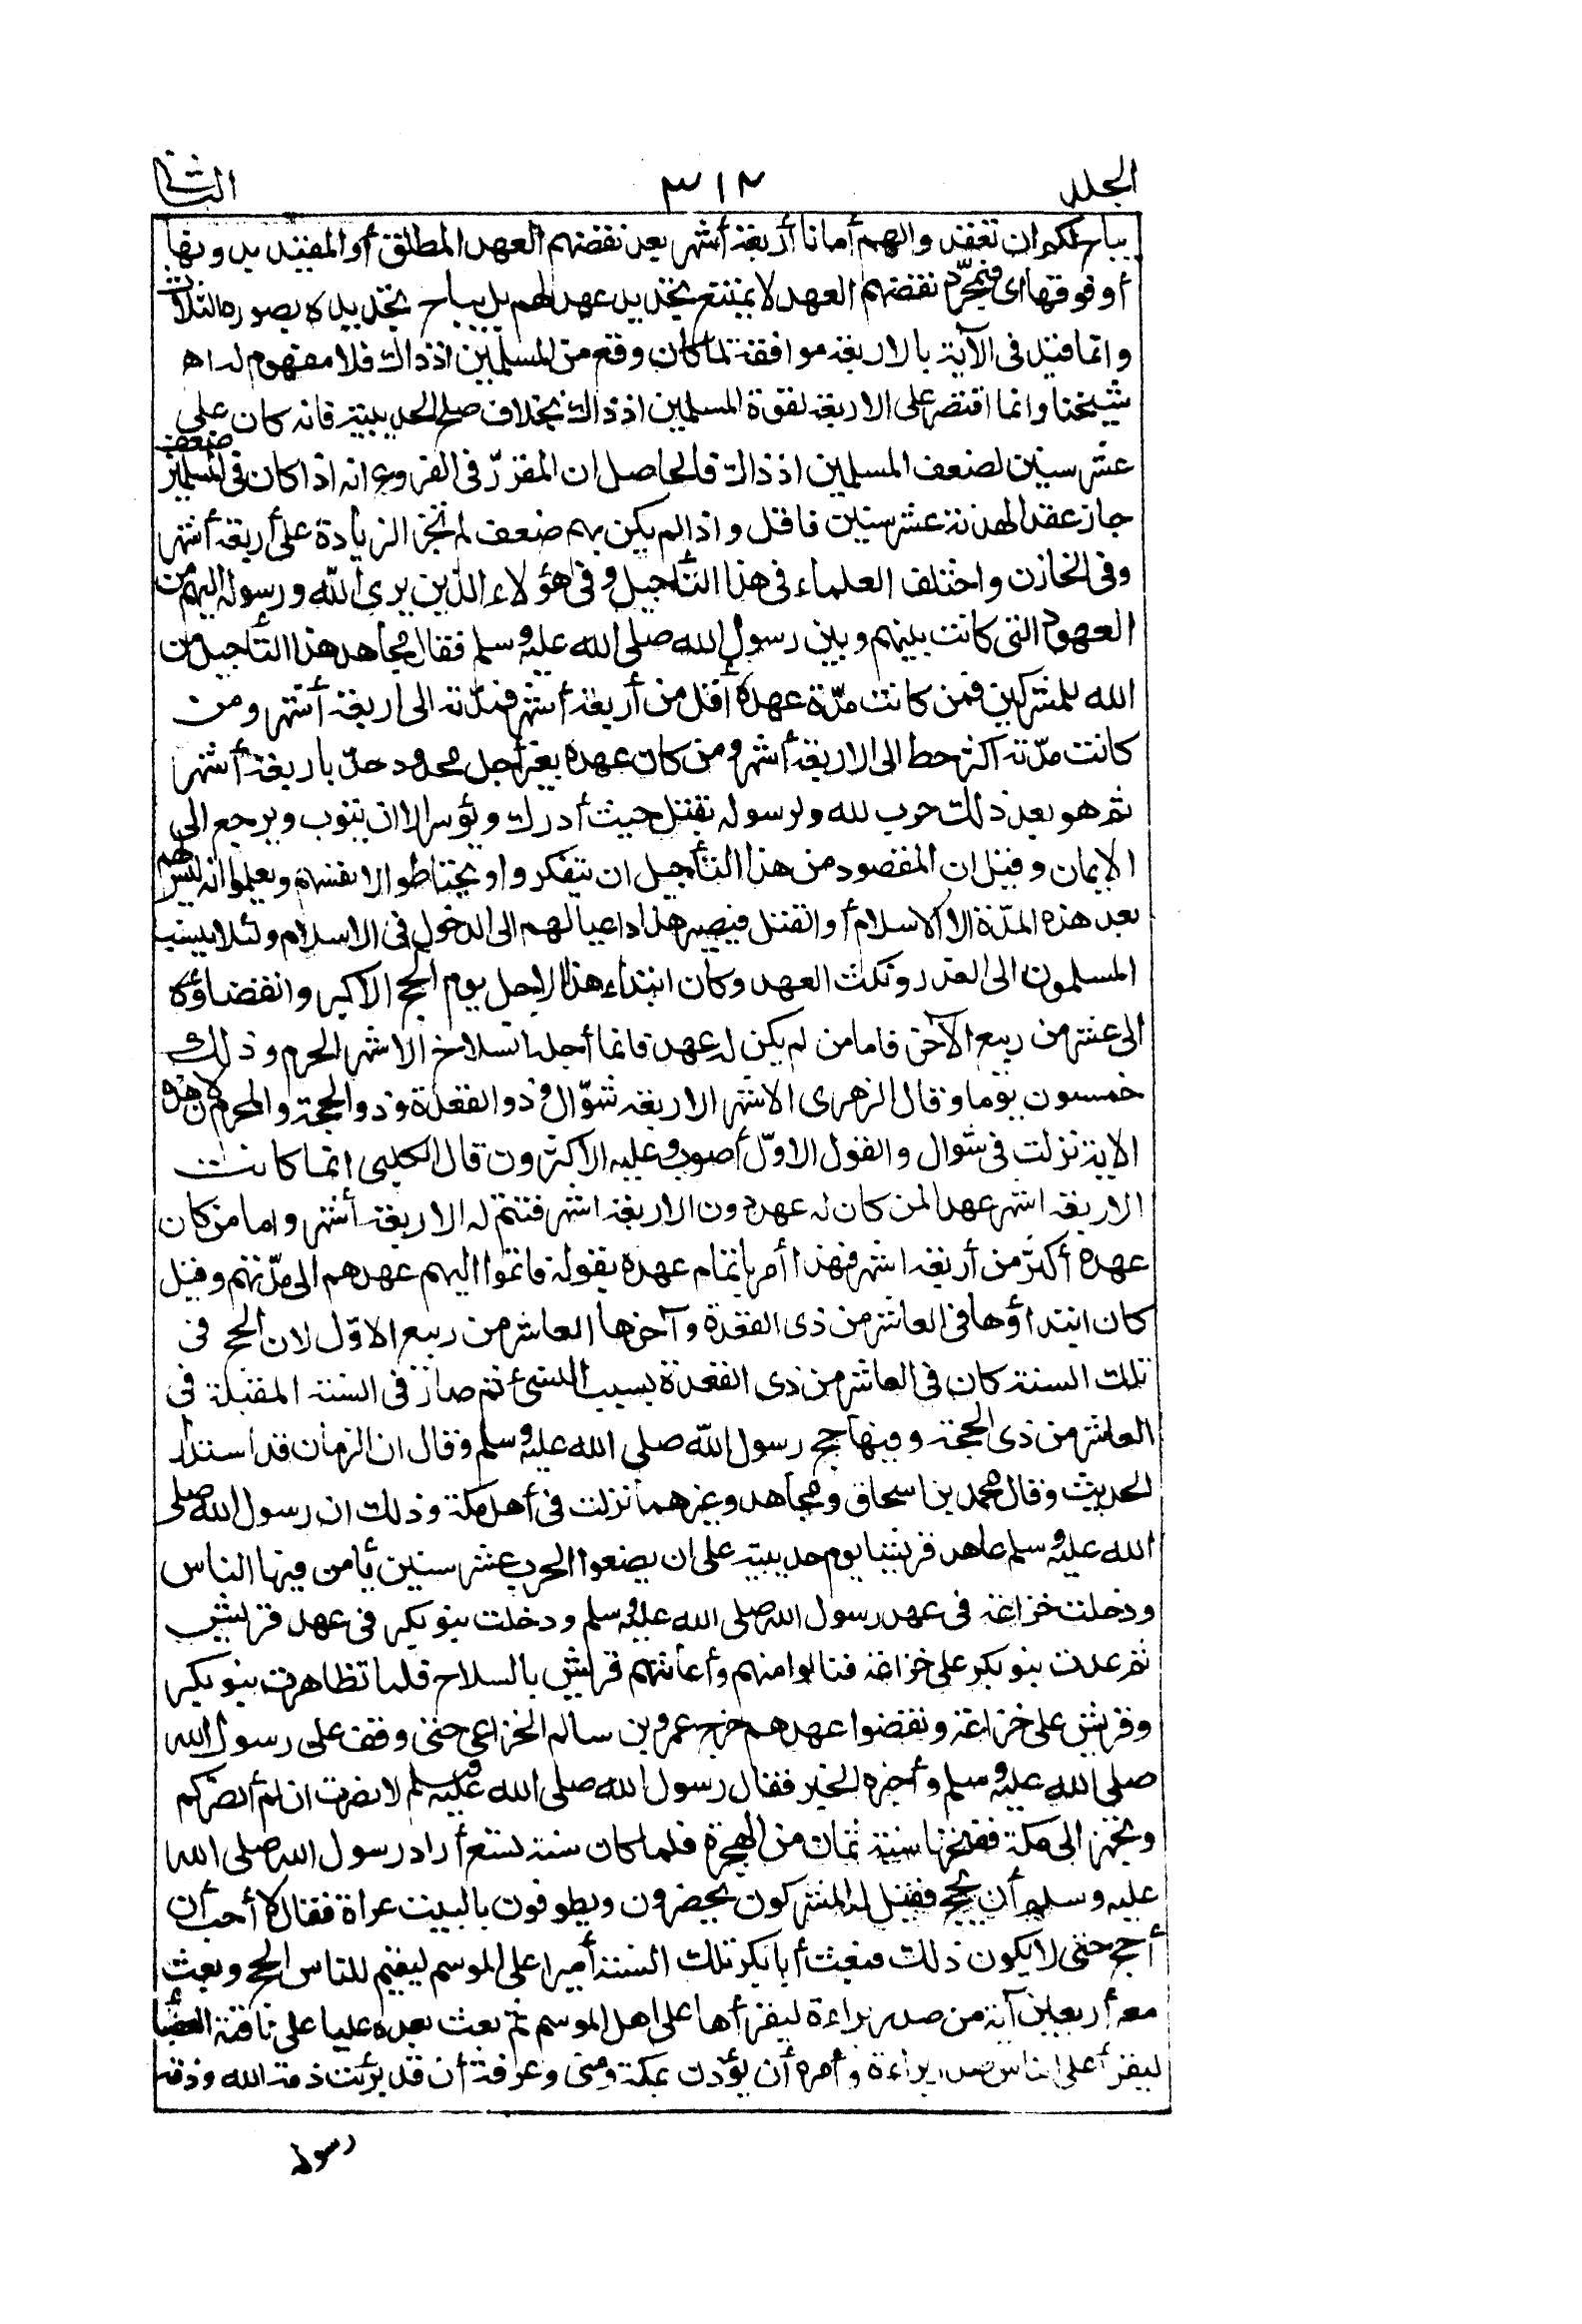 الجلد ٣١٢ الثانى
يباح لكم ان تعقدوا لهم أمانا أربعة أشهر بعد نقضهم العهد المطلق أو المقيد بدونها
أو فوقها اى فبمجرّد نقضهم العهد لا يمتنع تجديد عهد لهم بل يباح تجديده بصوره الثلاث
وانما قيد فى الآية بالاربعة موافقة لما كان وقع من المسلمين اذ ذاك فلا مفهوم له اه
شيخنا وانما اقتصر على الاربعة لقوة المسلمين اذ ذاك بخلاف صلح الحديبية فانه كان على
عشر سنين لضعف المسلمين اذ ذاك فالحاصل ان المقرّر فى الفروع انه اذا كان فى المسلمين ضعف
جاز عقد الهدنة عشر سنين فاقل واذا لم يكن بهم ضعف لم تجز الزيادة على أربعة أشهر
وفى الخازن واختلف العلماء فى هذا التأجيل وفى هؤلاء الذين برى الله ورسوله اليهم من
العهود التى كانت بينهم وبين رسول الله صلى الله عليه وسلم فقال مجاهد هذا التأجيل من
الله للمشركين فمن كانت مدّة عهده أقل من أربعة أشهر فمدّته الى اربعة أشهر ومن
كانت مدّته اكثر حط الى الاربعة أشهر ومن كان عهده بغير أجل محدود حدّ باربعة أشهر
ثم هو بعد ذلك حرب لله ولرسوله يقتل حيث أدرك ويؤسر الا ان يتوب ويرجع الى
الايمان وقيل ان المقصود من هذا التأجيل ان يتفكروا ويحتاطوا لانفسهم ويعلموا انه ليس لهم
بعد هذه المدّة الا الاسلام أو القتل فيصير هذا داعيا لهم الى الدخول فى الاسلام ولئلا ينسب
المسلمون الى الغدر ونكث العهد وكان ابتداء هذا الاجل يوم الحج الاكبر وانقضاؤه
الى عشر من ربيع الآخر فاما من لم يكن له عهد فانما أجله انسلاخ الاشهر الحرم وذلك
خمسون يوما وقال الزهرى الاشهر الاربعة شوّال وذو القعدة وذو الحجة والمحرم لان هذه
الاية نزلت فى شوال والقول الاوّل أصوب وعليه الاكثرون قال الكلبى انما كانت
الاربعة اشهر عهدا لمن كان له عهد دون الاربعة اشهر فتتم له الاربعة أشهر واما من كان
عهده أكثر من أربعة اشهر فهذا أمر باتمام عهده بقوله فاتموا اليهم عهدهم الى مدّتهم وقيل
كان ابتداؤها فى العاشر من ذى القعدة وآخرها العاشر من ربيع الاوّل لان الحج فى
تلك السنة كان فى العاشر من ذى القعدة بسبب النسئ ثم صار فى السنة المقبلة فى
العاشر من ذى الحجة وفيها حج رسول الله صلى الله عليه وسلم وقال ان الزمان قد استدار
الحديث وقال محمد بن اسحاق ومجاهد وغيرهما نزلت فى أهل مكة وذلك ان رسول الله صلى
الله عليه وسلم عاهد قريشا يوم حديبية على ان يضعوا الحرب عشر سنين يأمن فيها الناس
ودخلت خزاعة فى عهد رسول الله صلى الله عليه وسلم ودخلت بنو بكر فى عهد قريش
ثم عدت بنو بكر على خزاعة فنالوا منهم وأعانتهم قريش بالسلاح فلما تظاهرت بنو بكر
وقريش على خزاعة ونقضوا عهدهم خرج عمرو بن سالم الخزاعى حتى وقف على رسول الله
صلى الله عليه وسلم وأخبره الخبر فقال رسول الله صلى الله عليه وسلم لا نصرت ان لم أنصركم
وتجهز الى مكة ففتحها سنة ثمان من الهجرة فلما كان سنة تسع أراد رسول الله صلى الله
عليه وسلم أن يحج فقيل له المشركون يحضرون ويطوفون بالبيت عراة فقال لا أحب أن
أحج حتى لا يكون ذلك فبعث أبا بكر تلك السنة أميرا على الموسم ليقيم للناس الحج وبعث
معه أربعين آية من صدر براءة ليقرأها على اهل الموسم ثم بعث بعده عليا على ناقته العضبا
ليقرأ على الناس صدر براءة وأمره أن يؤذن بمكة ومنى وعرفة أن قد برئت ذمة الله وذمة
رسوله